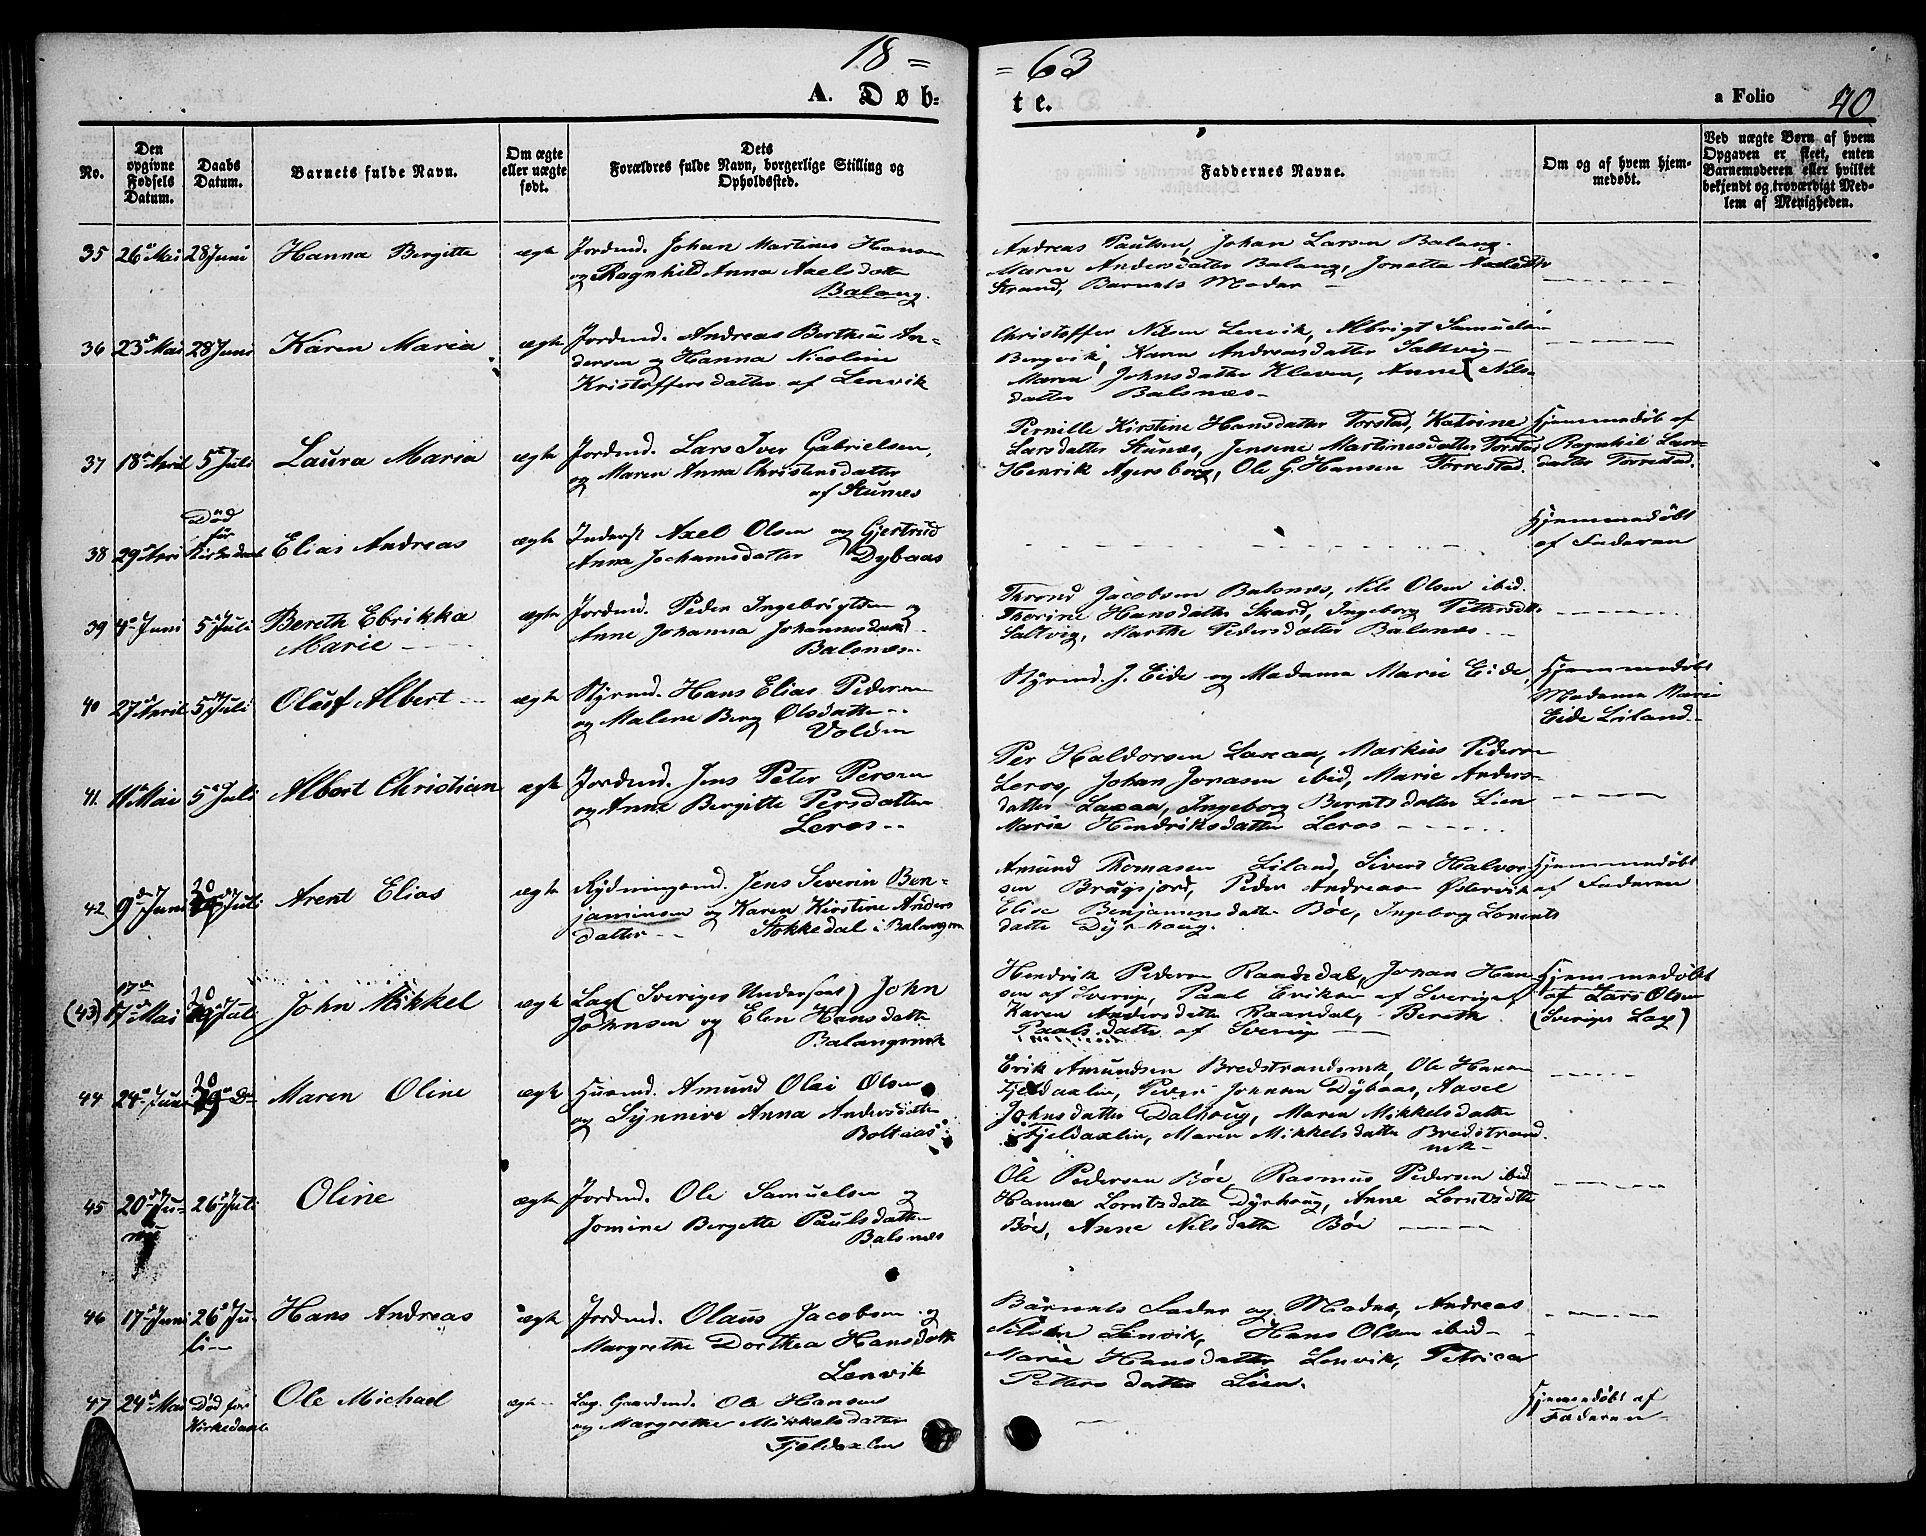 18 = = 63
A. Døb= te. a Folio 40
No.
Den opgivne Fødsels Datum.
Daabs Datum.
Barnets fulde Navn.
Om ægte eller uægte født.
Dets Forældres fulde Navn, borgerlige Stilling og Opholdssted.
Faddernes Navne.
Om og af hvem hjemmedøbt.
Ved uægte Børn af hvem Opgaven er skeet, enten Barnemoderen eller hvilket bekjendt og troværdigt Medlem af Menigheden.
35 26de Mai 28 Juni Hanna Bergitte ægte Jordmd. Johan Martines Hansen
og Ragnhild Anna Axelsdatter
Balang.
Andreas Paulsen, Johan Larsen Balang.
Maren Andersdatter Balang, Jonetta
Strand, Barnets Moder
36 23de Mai 28 Juni Karen Maria ægte Jordmd. Andreas Bertheu An-
dersen og Hanna Nicoline
Kristoffersdatter af Lenvik
Christoffer Nilsen Lenvik, Albrigt Samuelsen
Bergvik, Karen Andreasdatter Saltvig
Maren Johnsdatter Kleven, Anne Nils-
datter Balsnæs
37 18de April 5te Juli Laura Maria ægte Jordmd. Lars Iver Gabrielsen,
og Maren Anna Christensdatter
af Stunes
Pernille Kirstine Hansdatter Torstad, Katrine
Larsdatter Stunæs, Jensine Martinesdatter Torstad
Henrik Agersborg, Ole G. Hansen Torrestad.
Hjemmedøb af
Ragnhil Lars-
datter Torrestad.
38 29de April Død før Kirkedaab Elias Andreas ægte Inderst Axel Olsen og Gjertrud
Anna Jochumsdatter Dybaas
Hjemmedøbt
af Faderen
39 4de Juni 5te Juli Bereth Ebrikka
Marie
ægte Jordmd. Peder Ingebrigtsen og
Anne Johanna Johannesdatter
Balsnæs
Thrond Jacobsen Balsnæs, Nils Olsen ibid.
Thorine Hansdatter Skard, Ingeborg Pettersdtr
Saltvig, Marthe Pedersdatter Balsnæs
40 27de April 5te Juli Oluf Albert ægte Styrmd. Hans Elias Pedersen
og Malene Berg Olsdatter
Volden
Styrmd. J. Eide og Madama Marie Eide,
Hjemmedøbt
Madama Marie
Eide Liland
41. 11te Mai 5te Juli Albert Christian ægte Jordmd. Jens Peter Persen
og Anne Bergitte Persdatter
Leros
Per Haldorsen Laxaa, Markus Pedersen
Leros, Johan Jonasen ibid, Marie Anders-
datter Laxaa, Ingeborg Berntsdatter Lien
Marie Hendriksdatter Leros
42 9de Juni 20 Juli Arent Elias ægte Rydningsmd. Jens Severin Ben-
jaminsen og Karen Kirstine Anders
datter Stokkedal i Balangen
Amund Thomasen Liland, Sivert Halvor-
sen Brugsjord, Peder Andreasen Østervik
Elise Benjaminsdatter Bøe, Ingeborg Lorents
datter Dyrhaug.
Hjemmedøbt
af Faderen
(43) 17de Mai 20 Juli John Mikkel ægte Lap (Sveriges Undersaat) John
Johnsen og Elen Hansdatter
Balangseide
Hendrik Pedersen Raandal, Johan Han-
sen af Sverige, Paal Eriksen af Sverige,
Karen Andersdatter Raandal, Bereth
Paalsdatter af Sverige
Hjemmedøbt
af Lars Olsen
(Sveriges Lap)
44 24de Juni 20 D Maren Oline ægte Husmd. Amund Olai Olsen
og Synneve Anna Andersdatter
Boltaas
Erik Amundsen Bredstrandsmk, Ole Hansen
Fjeldaxlen, Peder Johnsen Dybaas, Aasel
Johnsdatter Dalhoug, Maren Mikkelsdatter
Fjeldaxlen, Maren Mikkelsdatter Bredstrand
mk
45 20de Ju-
26 Juli Oline ægte Jordmd. Ole Samuelsen og
Jomine Bergette Paulsdatter
Balsnæs
Ole Pedersen Bøe, Rasmus Pedersen ibid
Hanna Lorntsdatter Dyrhoug, Anne Lorntsdtr
Bøe, Anne Nilsdatter Bøe
46 17de Juni 26de Ju-
li
Hans Andreas ægte Jordmd. Olaus Jacobsen og
Margrethe Dorthea Hansdatter
Lenvik
Barnets Fader og Moder, Andreas
Nilsen Lenvik, Hans Olsen ibid
Marie Hansdatter Lenvik, Petrica
Pettersdatter Lien.
47 24de Mai Død før
Kirkedaab
Ole Michael ægte Lap. Gaardmd. Ole Hansen
og Margrethe Mikkelsdatter
Fjeldaxlen
Hjemmedøbt af
Faderen